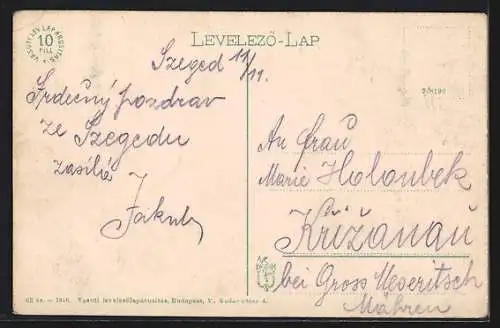 VASUTI LEVLAPÁRUSITÁS
10
FILL
LEVELEZŐ-LAP
Szeged 11/11.
Srdečný pozdrav
ze Szegedu
zasílá
Jakub
An Frau
Marie Holoubek
Křižanau
bei Gross Meseritsch
Mähren
Vasuti levelezőlapárusitás, Budapest, V.